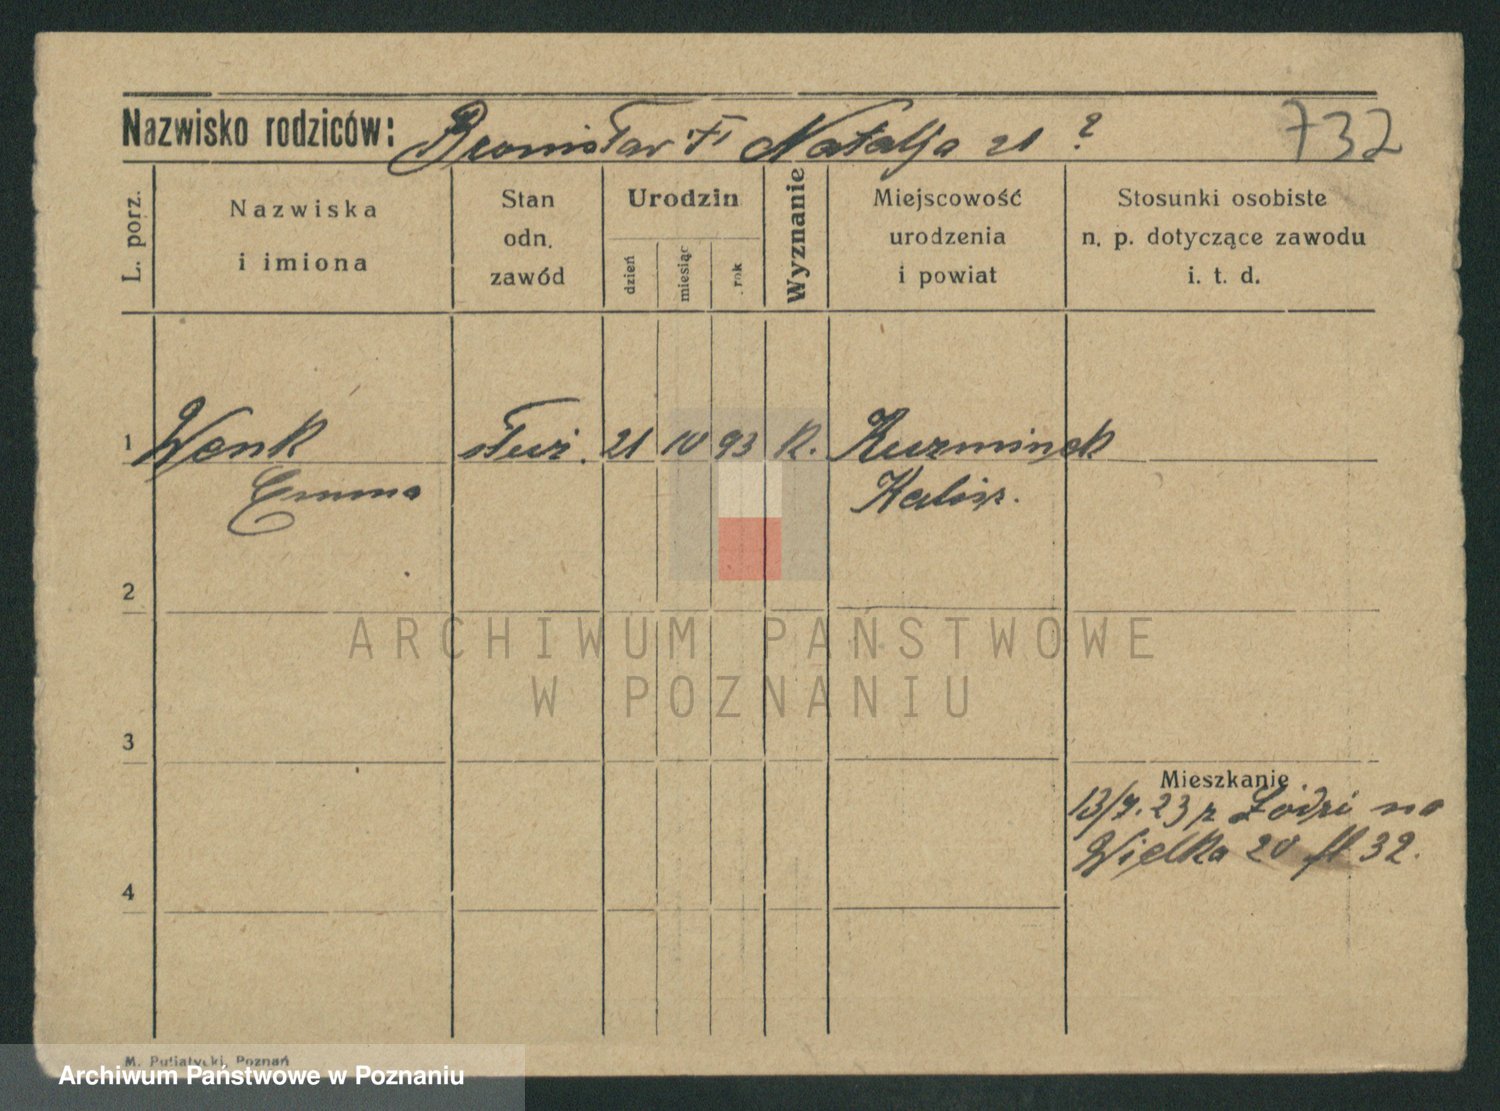 Nazwisko rodziców: Bronisław Natalja ?
732
L. porz.
Nazwiska
i imiona
Stan
odn.
zawód
Urodzin
dzień
miesiąc
rok
Wyznanie
Miejscowość
urodzenia
i powiat
Stosunki osobiste
n. p. dotyczące zawodu
i. t. d.
1 Wenk służ. 21 10 93 k. Kuzminek
Emma Kalisz.
2
ARCHIWUM PAŃSTWOWE
W POZNANIU
3
Mieszkanie
23 z Łodzi na
Wielka 20 32.
4
M. Putiatycki, Poznań
Archiwum Państwowe w Poznaniu